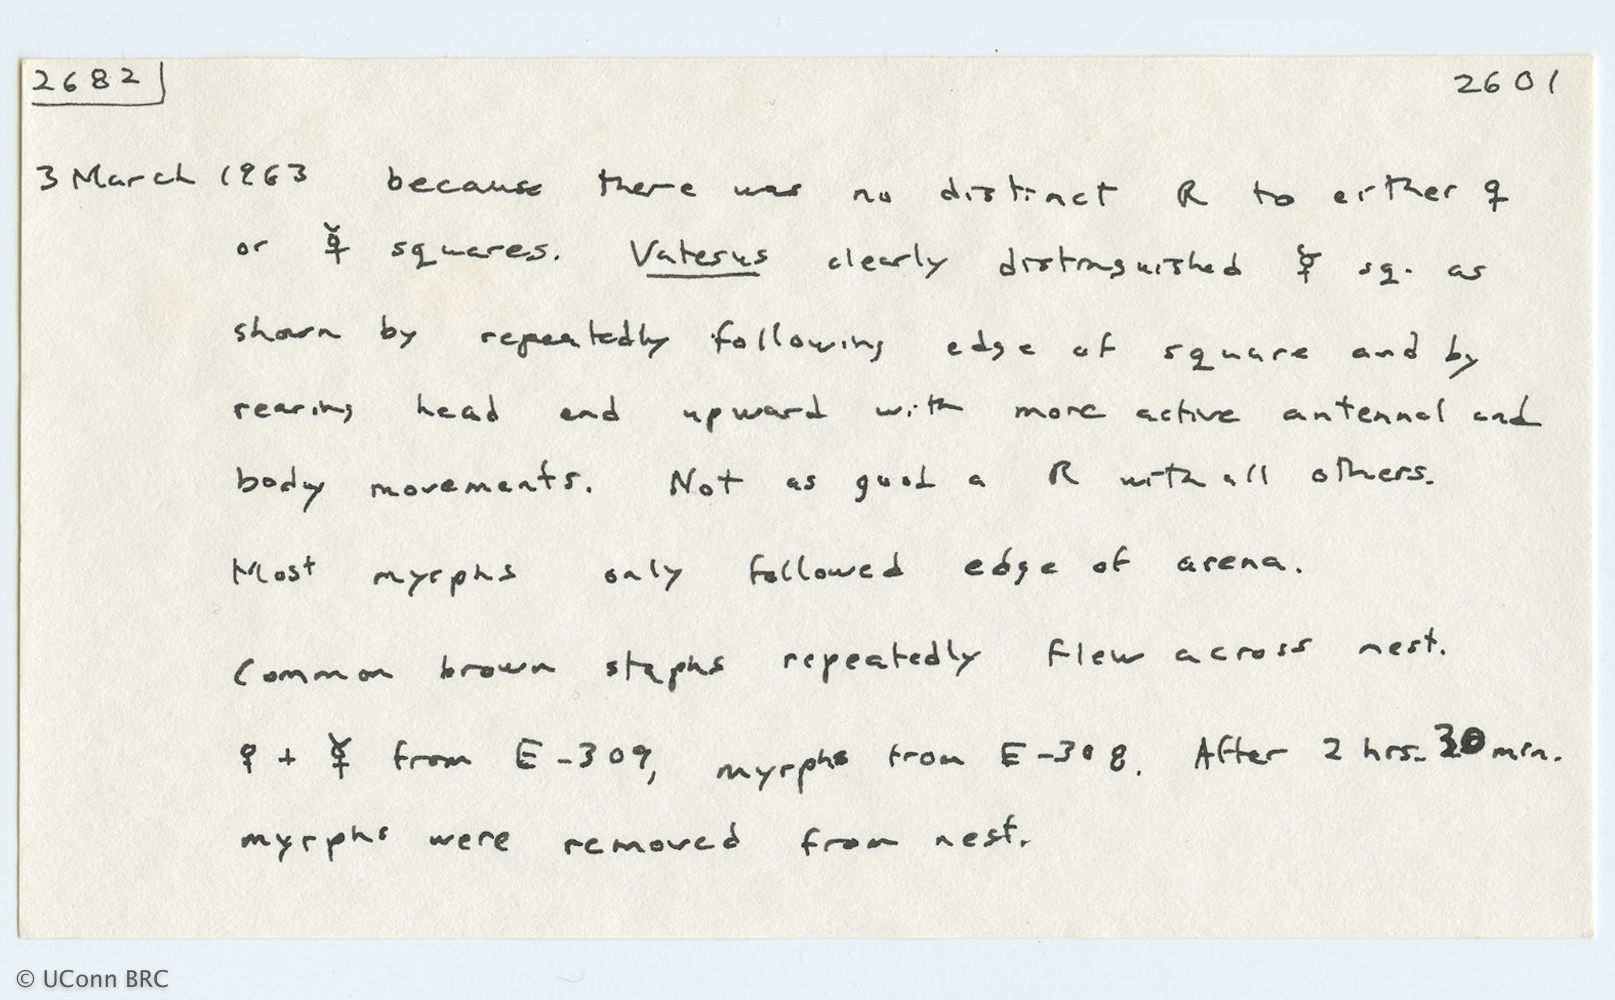 2682 2601
3 March 1963 because there was no distinct R to either ♀
or ☿ squares. Vatesus clearly distinguished ☿ sq. as
shown by repeatedly following edge of square and by
rearing head end upward with more active antennal and
body movements. Not as good a R with all others.
Most myrphs only followed edge of arena.
Common brown staphs repeatedly flew across nest.
♀ + ☿ from E-309, myrphs from E-308. After 2 hrs. 30 min.
myrphs were removed from nest.
© UConn BRC